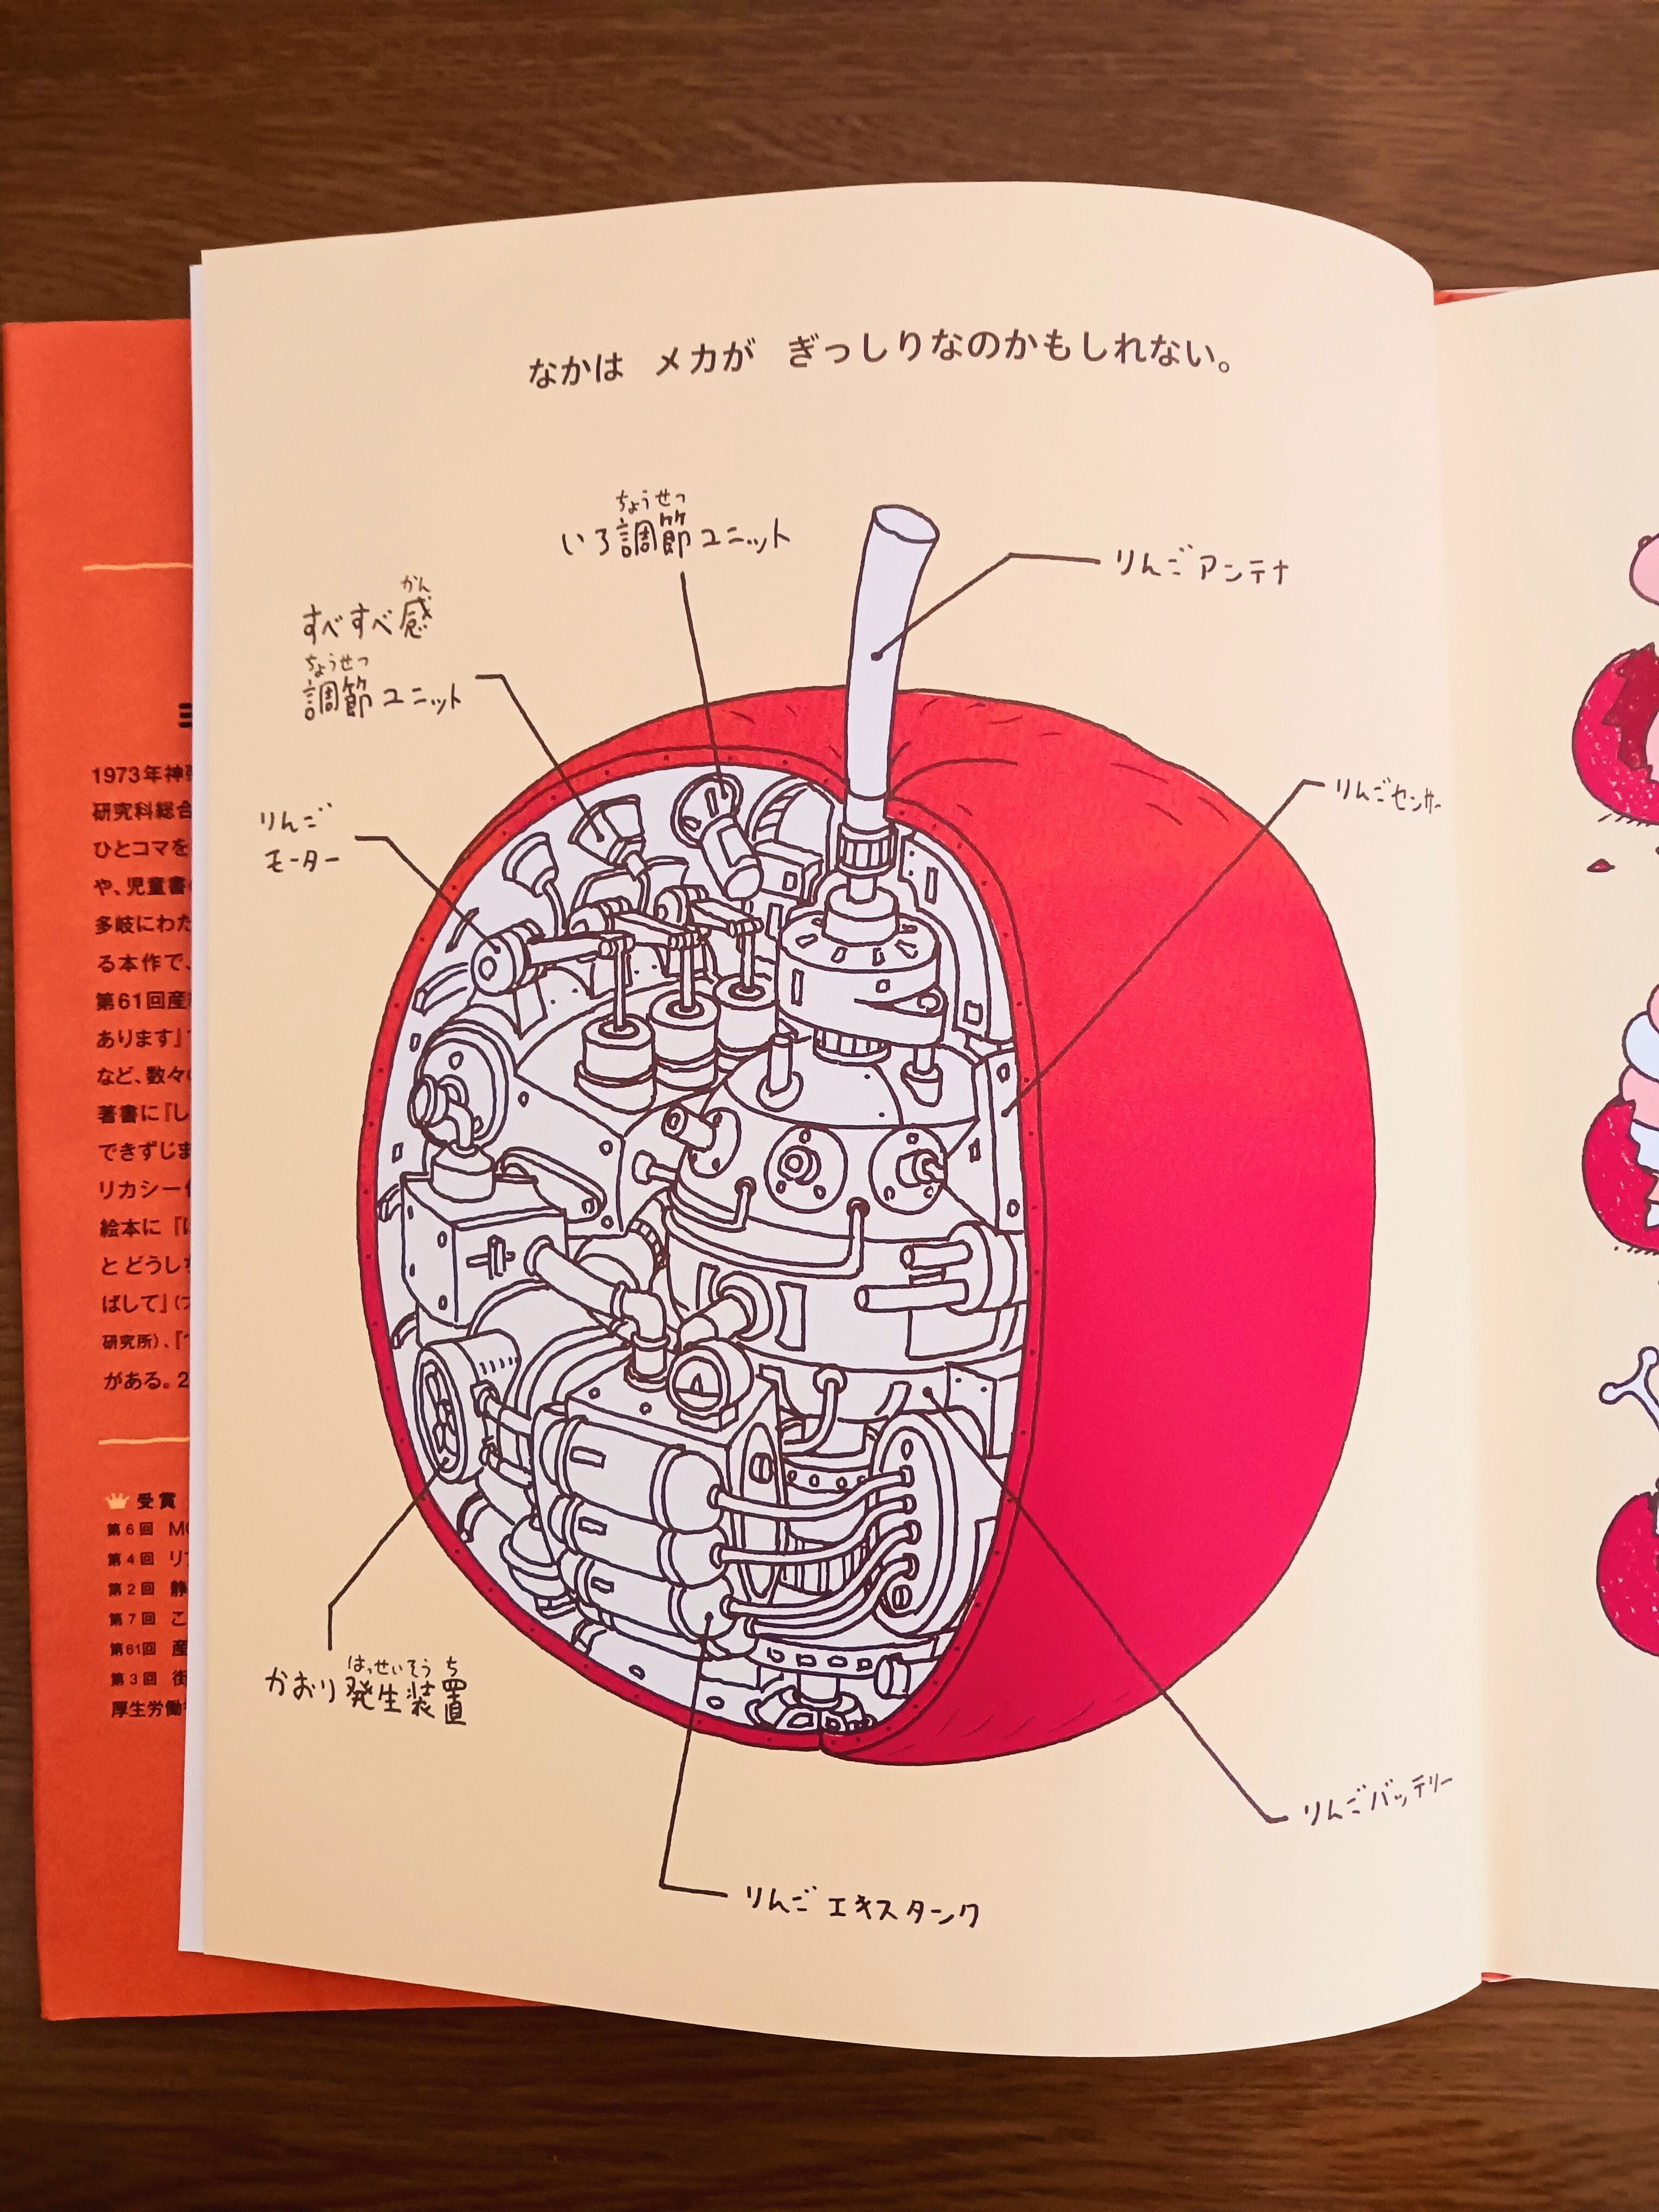 なかは メカが ぎっしりなのかもしれない。
ちょうせつ
いろ調節ユニット
りんごアンテナ
かん
すべすべ感
ちょうせつ
調節ユニット
りんごセンサー
りんご
モーター
はっせいそうち
かおり発生装置
りんごバッテリー
りんごエキスタンク
1973年神
研究科総合
ひとコマを
や、児童書
多岐にわた
る本作で、
第61回産
あります』
など、数々
著書に『し
できずじま
リカシー
絵本に『
とどうし
ばして』
研究所)、『
がある。2
受賞
第6回 M
第4回 リ
第2回 静
第7回 こ
第61回 産
第3回 街
厚生労働